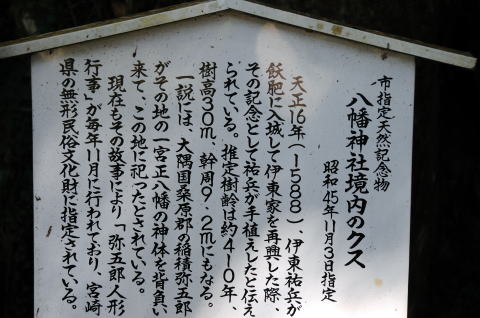 市指定天然記念物
八幡神社境内のクス
昭和45年11月3日指定
天正16年(1588)、伊東祐兵が
飫肥に入城して伊東家を再興した際、
その記念として祐兵が手植えしたと伝え
られている。推定樹齢は約410年、
樹高30m、幹周9.2mにもなる。
一説には、大隅国桑原郡の稲積弥五郎
がその地の一宮正八幡の神体を背負い
来て、この地に祀ったとされている。
現在もその故事により「弥五郎人形
行事」が毎年11月に行われており、宮崎
県の無形民俗文化財に指定されている。